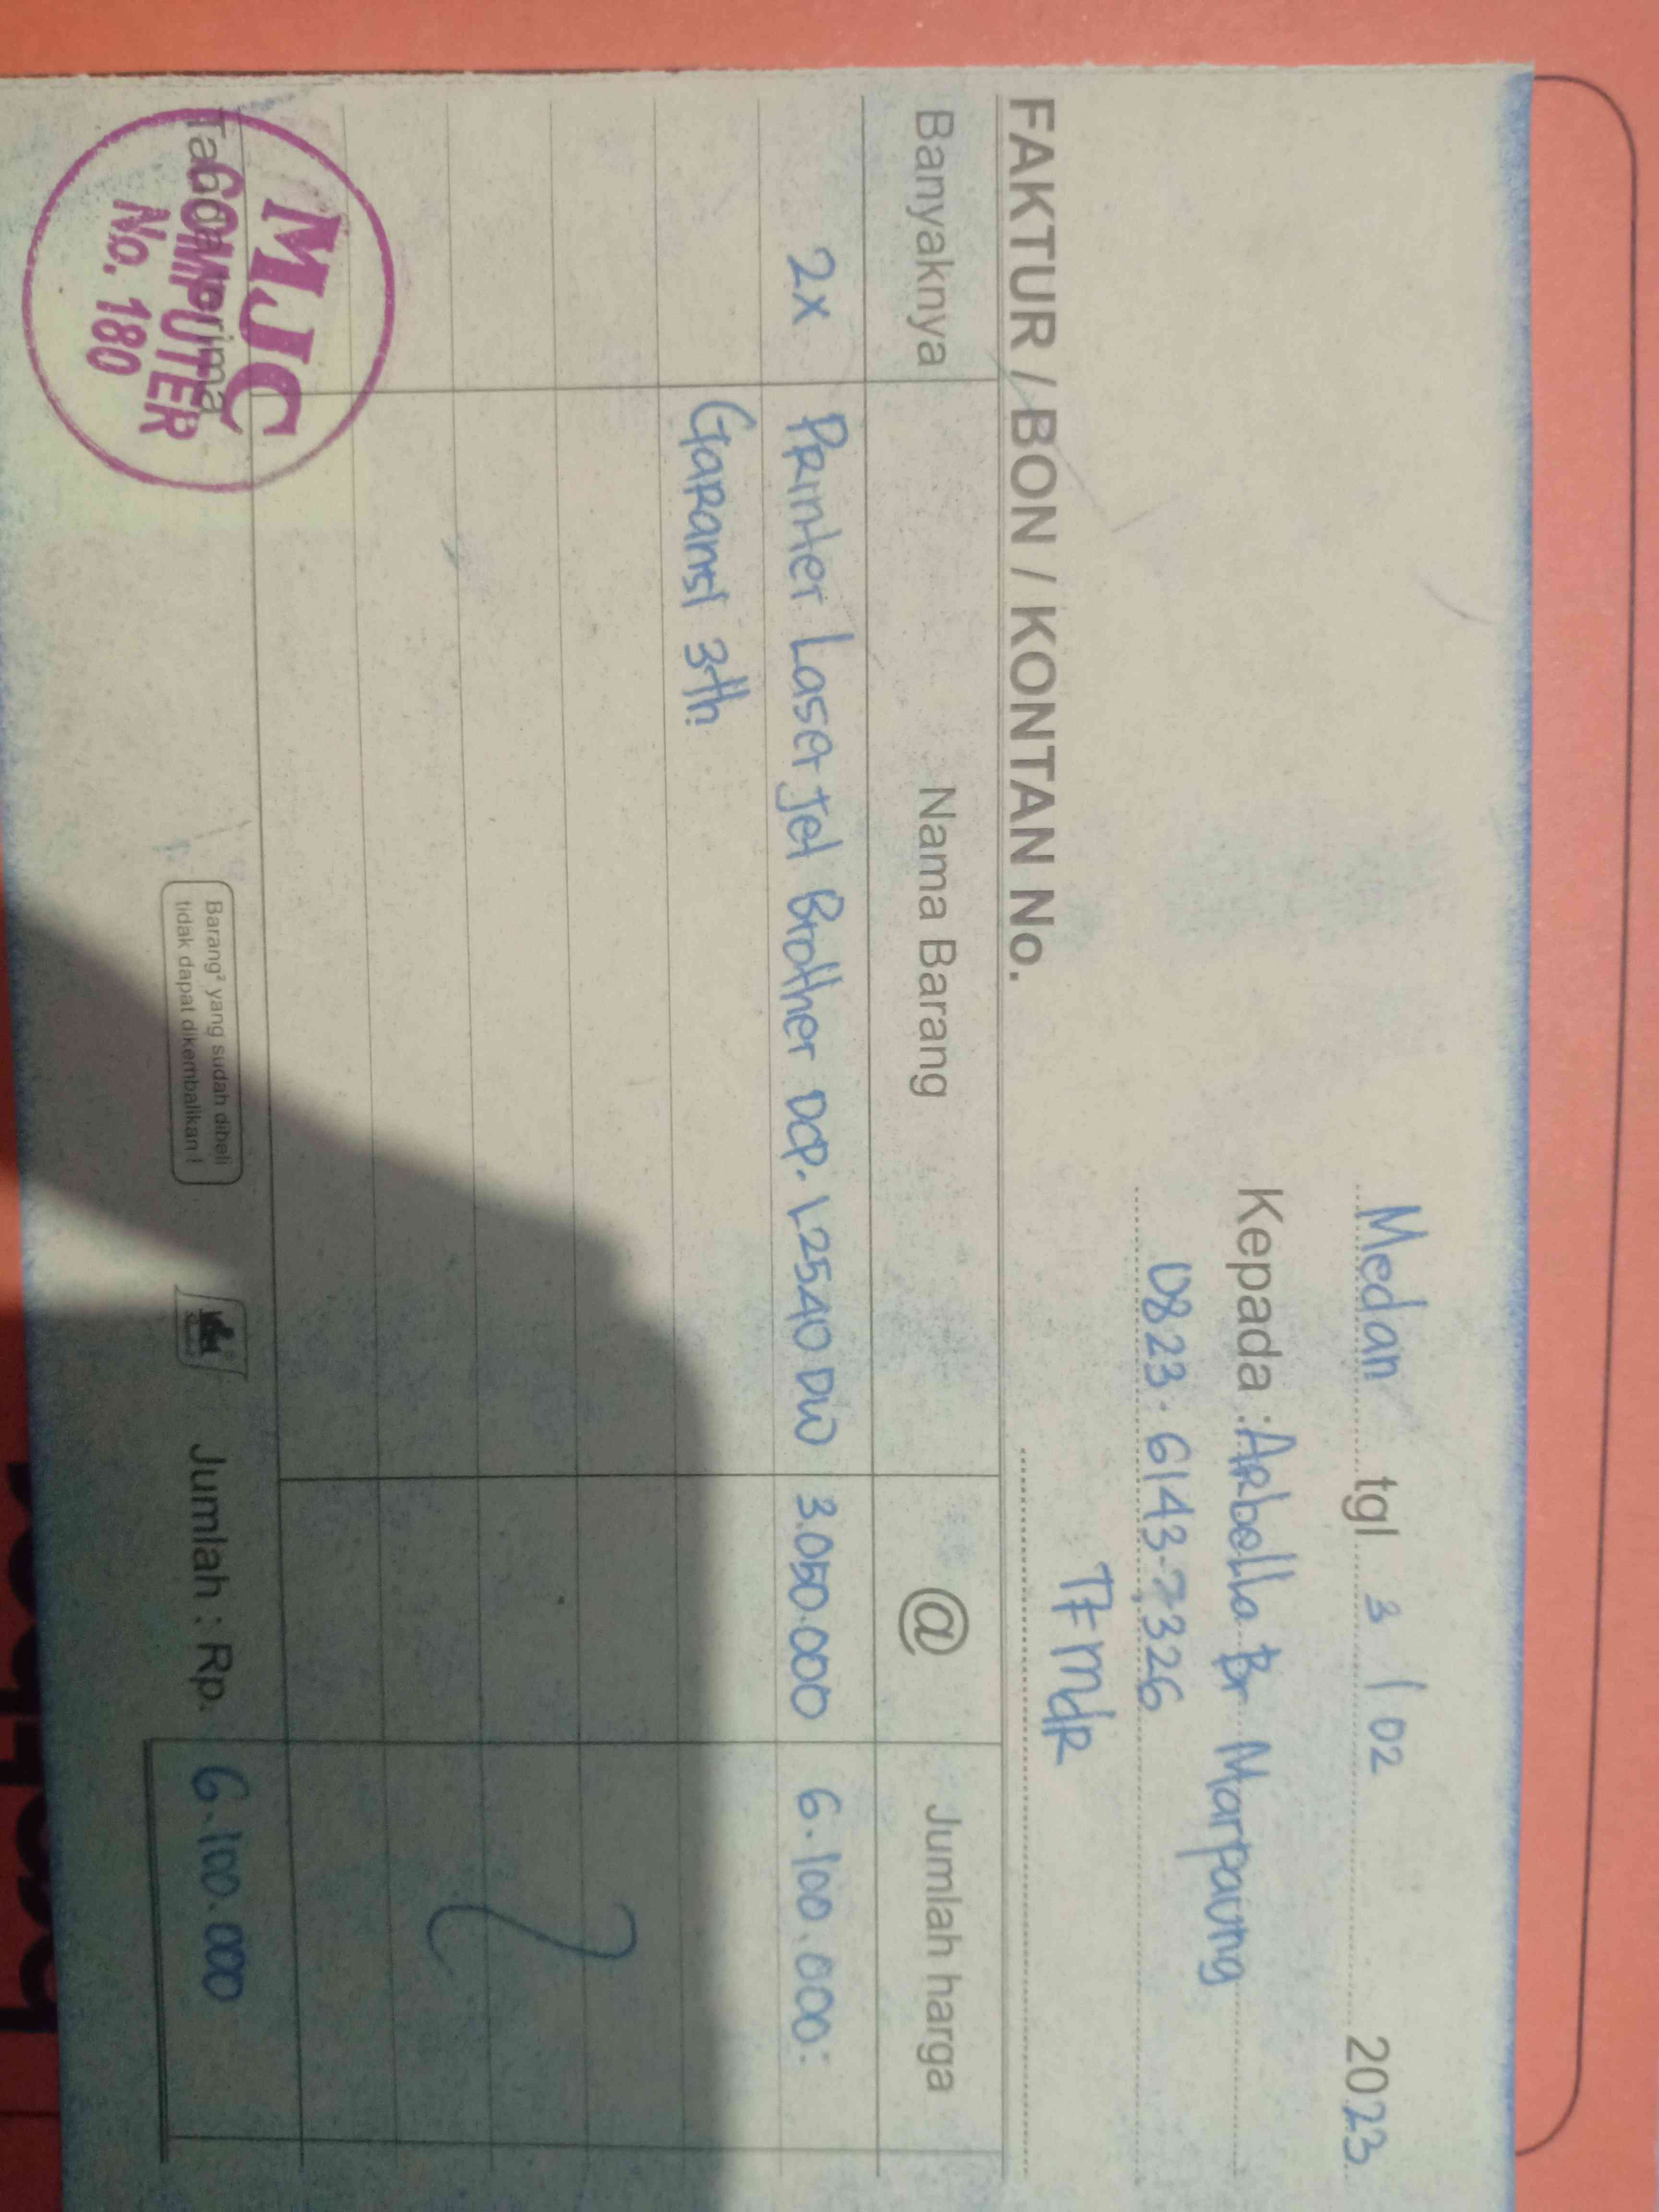 Medan tgl 3 / 02 2023
Kepada : Arbella Br Marpaung
0823.6143.7326
TF MDR
FAKTUR / BON / KONTAN No.
Banyaknya Nama Barang @ Jumlah harga
2x Printer Laser Jet Brother DCP. L2540 DW 3.050.000 6.100.000:
Garansi 3th
Tanda terima
MJC
COMPUTER
No. 180
Barang² yang sudah dibeli
tidak dapat dikembalikan !
Jumlah : Rp. 6.100.000